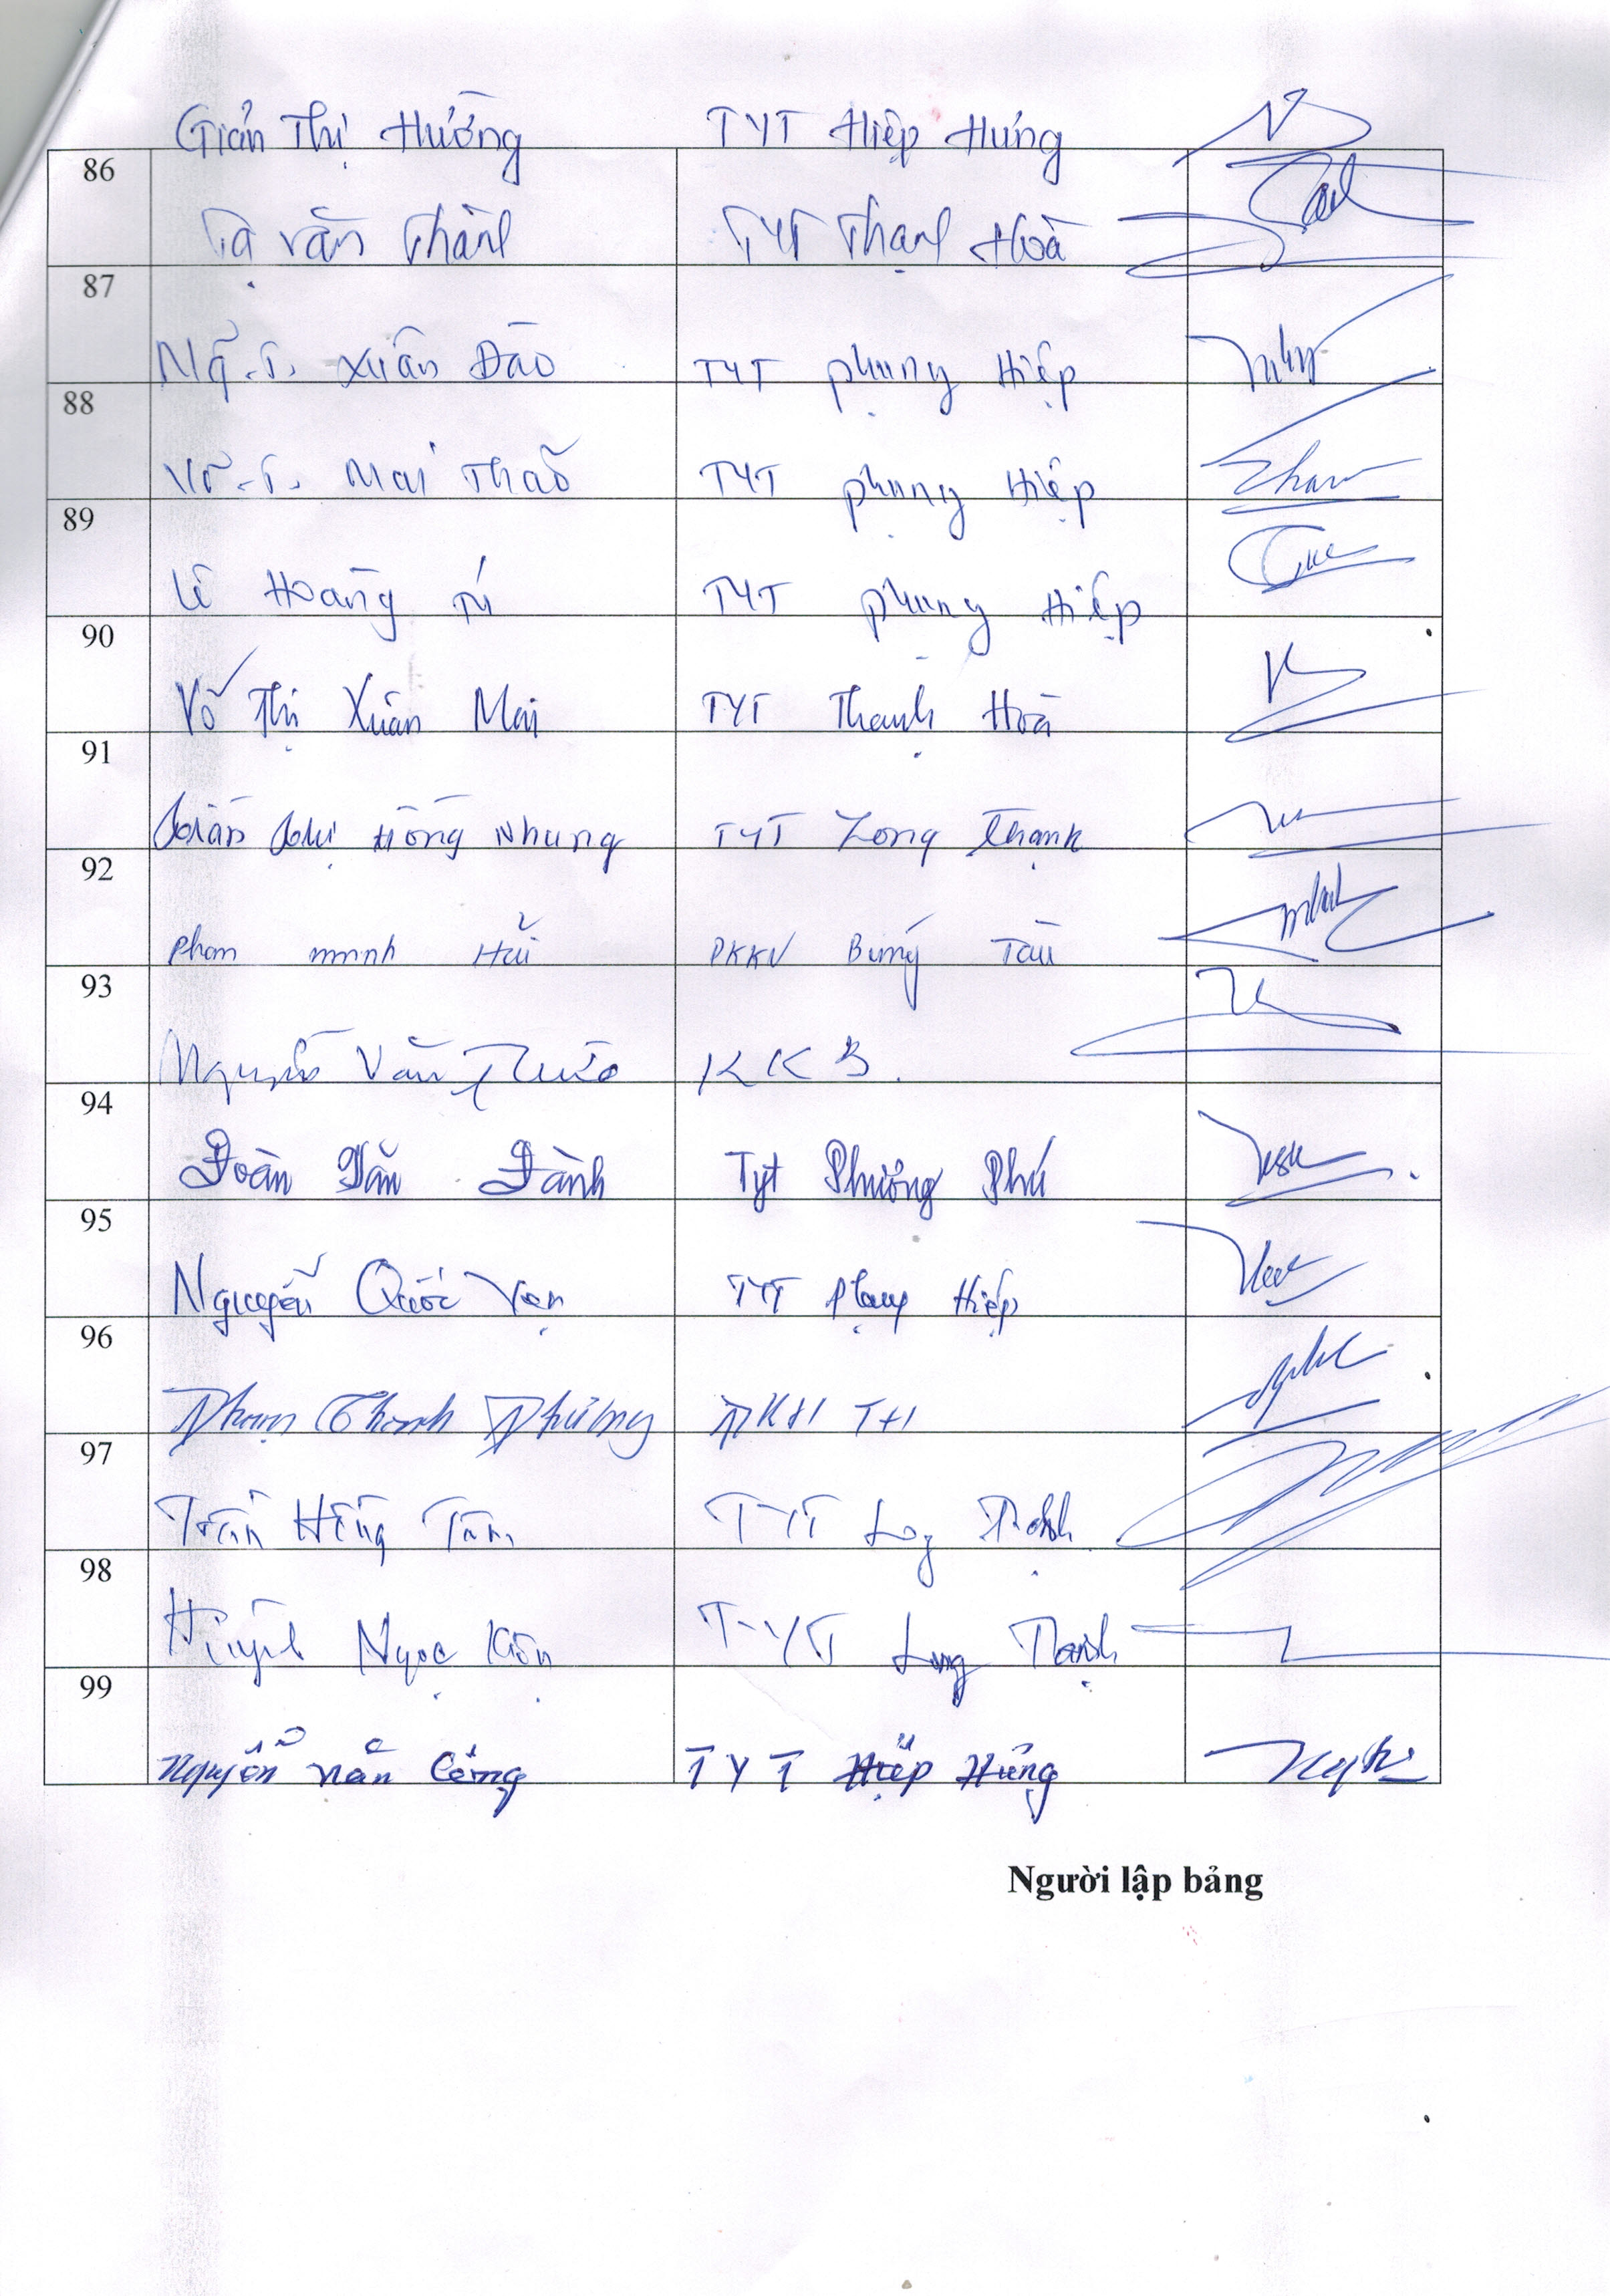 Giản Thị Hường TYT Hiệp Hưng
86 Tạ Văn Thành TYT Thạnh Hoà
87 Ng.T. Xuân Đào TYT Phụng Hiệp
88 Võ.T. Mai Thảo TYT Phụng Hiệp
89 Lê Hoàng TYT Phụng Hiệp
90 Võ Thị Xuân Mai TYT Thạnh Hoà
91 Trần Thị Hồng Nhung TYT Long Thạnh
92 Phạm minh Hải PKKV Búng Tàu
93 Nguyễn Văn KKB
94 Đoàn Văn Đành Tyt Phương Phú
95 Nguyễn Quốc Vẹn TYT Phụng Hiệp
96 Phạm Thanh Phương
97 Trần Hồng Tâm TYT Long Thạnh
98 Huỳnh Ngọc TYT Long Thạnh
99 Nguyễn Văn Công TYT Hiệp Hưng
Người lập bảng